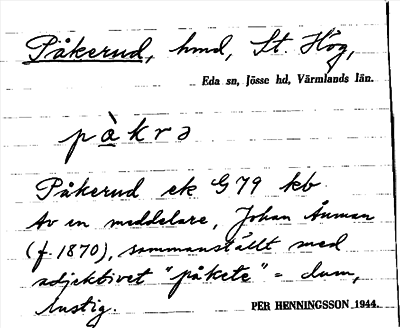 Påkerud, hmd, St. Hög,
Eda sn, Jösse hd, Värmlands län.
pàkrə
Påkerud ek G 79 kb
Av en meddelare, Johan Ånman
(f. 1870), sammanställt med
adjektivet "påkete" = dum,
lustig.
PER HENNINGSSON 1944.